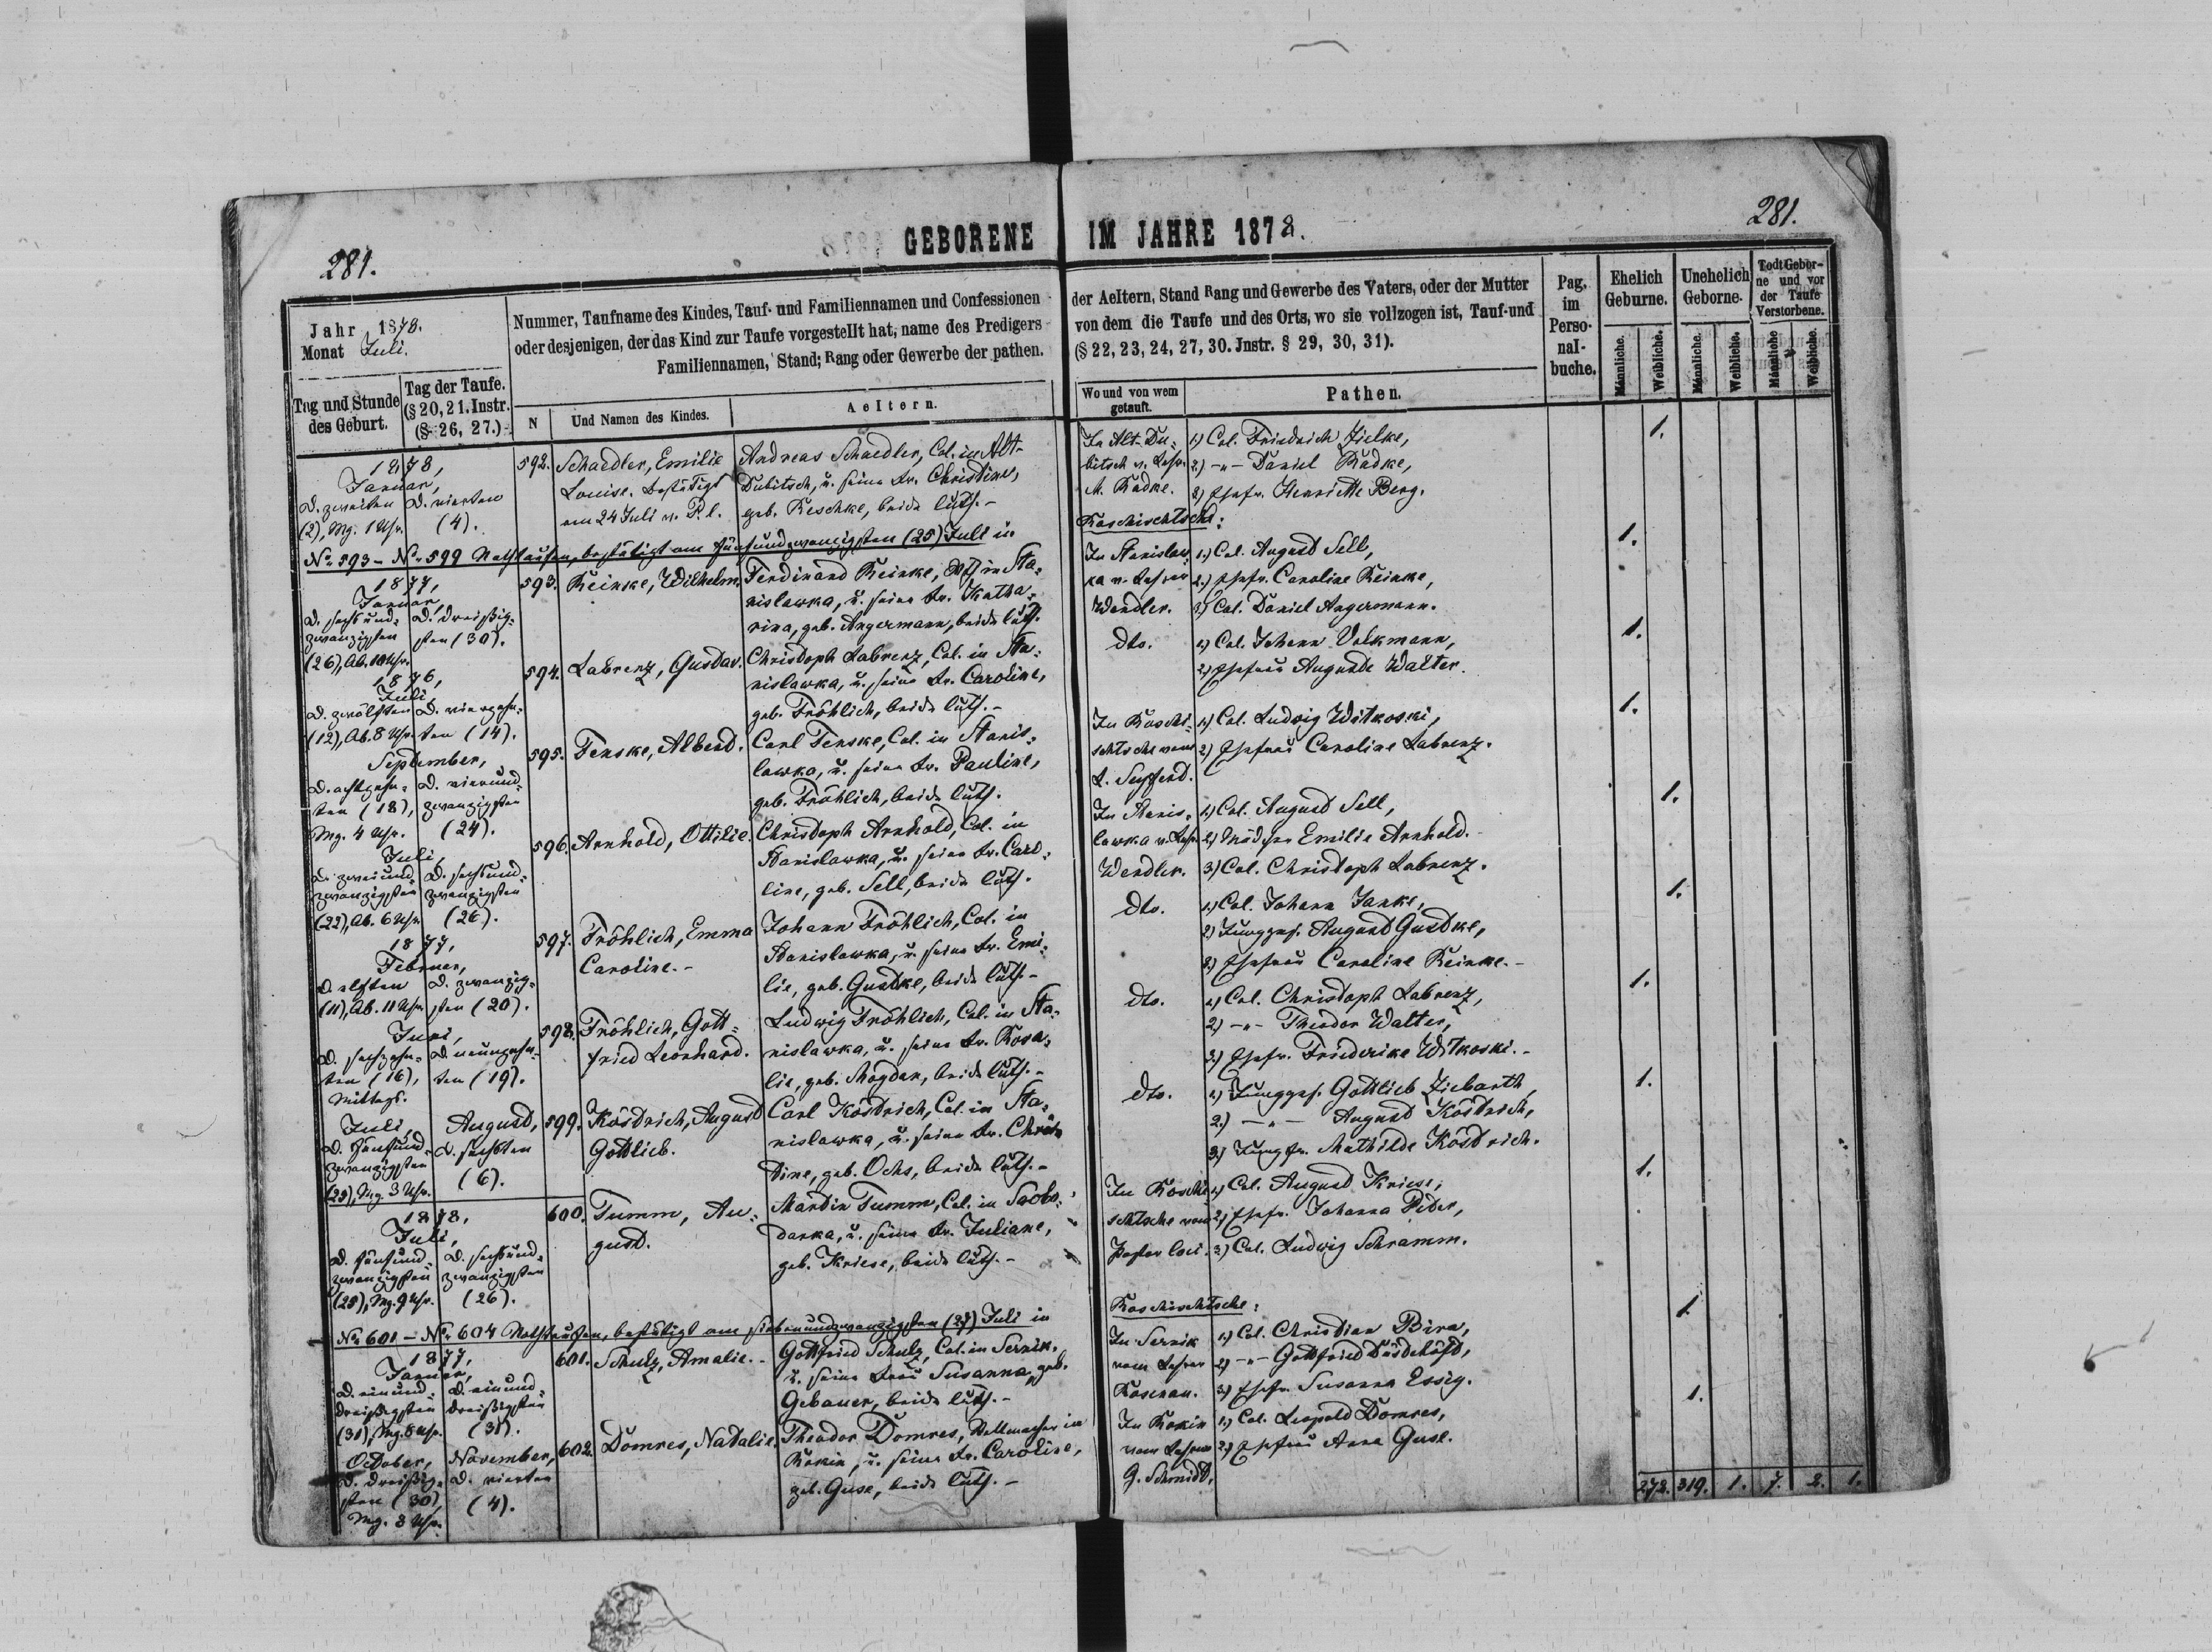 281.
GEBORENE IM JAHRE 1878.
281.
Jahr 1878.
Monat Juli.
Tag und Stunde des Geburt.
Tag der Taufe. (§ 20, 21. Instr. (§ 26, 27.)
Nummer, Taufname des Kindes, Tauf- und Familiennamen und Confessionen
oder desjenigen, der das Kind zur Taufe vorgestellt hat, name des Predigers
Familiennamen, Stand; Rang oder Gewerbe der pathen.
N
Und Namen des Kindes.
Aeltern.
der Aeltern, Stand Rang und Gewerbe des Vaters, oder der Mutter
von dem die Taufe und des Orts, wo sie vollzogen ist, Tauf- und
(§ 22, 23, 24, 27, 30. Jnstr. § 29, 30, 31).
Wo und von wem getauft.
Pathen.
Pag. im Perso- nal- buche.
Ehelich Geburne.
Unehelich Geborne.
Todt Gebor- ne und vor der Taufe Verstorbene.
Männliche.
Weibliche.
Männliche.
Weibliche.
Männliche
Weibliche.
1878,
Januar,
D. zweiten
(2), Mg. 1 Uhr.
D. vierten
(4).
592.
Schaedler, Emilie
Louise. bestätigt
am 24 Juli v. P. l.
Andreas Schaedler, Col. in Alt-
Dubitsch, u. seine Fr. Christine,
geb. Reschke, beide luth.-
In Alt-Du-
bitsch v. Lehr.
A. Radke.
1.) Col. Friedrich Zielke,
2.) -"- Daniel Radke,
3.) Ehefr. Henriette Berg.
1.
No. 593 - No. 599 Nothtaufen, bestätigt am fünfundzwanzigsten (25) Juli in
Koschischtsche:
1877,
Januar,
D. sechsund-
zwanzigsten
(26), Ab. 10 Uhr.
D. dreißig-
sten (30).
593.
Reinke, Wilhelm.
Ferdinand Reinke, Col. in Sta-
nislawka, u. seine Fr. Katha-
rina, geb. Angermann, beide luth.
In Stanislaw-
ka v. Lehrer
Wendler.
1.) Col. August Sell,
2.) Ehefr. Caroline Reinke,
3.) Col. Daniel Angermann.
1.
1876,
Juli,
D. zwölften
(12), Ab. 8 Uhr.
D. vierzehn-
ten (14).
594.
Labrenz, Gustav.
Christoph Labrenz, Col. in Sta-
nislawka, u. seine Fr. Caroline,
geb. Fröhlich, beide luth.-
dto.
1.) Col. Johann Volkmann,
2.) Ehefrau Auguste Walter.
1.
September,
D. achtzehn-
ten (18),
Mg. 4 Uhr.
D. vierund-
zwanzigsten
(24).
595.
Tenske, Albert.
Carl Tenske, Col. in Stanis-
lawka, u. seine Fr. Pauline,
geb. Fröhlich, beide luth.
In Koschi-
schtsche vom
L. Seyfert.
1.) Col. Ludwig Witkoski,
2.) Ehefrau Caroline Labrenz.
1.
Juli,
D. zweiund-
zwanzigsten
(22), Ab. 6 Uhr.
D. sechsund-
zwanzigsten
(26).
596.
Arnhold, Ottilie.
Christoph Arnhold, Col. in
Stanislawka, u. seine Fr. Caro-
line, geb. Sell, beide luth.
In Stanis-
lawka v. Lehr.
Wendler.
1.) Col. August Sell,
2.) Mädchen Emilie Arnhold.
3.) Col. Christoph Labrenz.
1.
1877,
Februar,
D. elften
(11), Ab. 11 Uhr.
D. zwanzig-
sten (20).
597.
Fröhlich, Emma
Caroline.-
Johann Fröhlich, Col. in
Stanislawka, u. seine Fr. Emi-
lie, geb. Gustke, beide luth.-
dto.
1.) Col. Johann Janke,
2.) Jungges. August Gustke,
3.) Ehefrau Caroline Reinke.-
1.
Juni,
D. sechzehn-
ten (16),
Mittags.
D. neunzehn-
ten (19).
598.
Fröhlich, Gott-
fried Leonhard.
Ludwig Fröhlich, Col. in Sta-
nislawka, u. seine Fr. Rosa-
lie, geb. Mogdan, beide luth.-
dto.
1.) Col. Christoph Labrenz,
2.) -"- Theodor Walter,
3.) Ehefr. Friederike Witkoski.-
1.
Juli,
D. fünfund-
zwanzigsten
(25), Mg. 3 Uhr.
August,
D. sechsten
(6).
599.
Köstrich, August
Gottlieb.
Carl Köstrich, Col. in Sta-
nislawka, u. seine Fr. Chris-
tine, geb. Ochs, beide luth.-
dto.
1.) Junggs. Gottlieb Ziebarth,
2.) -"- August Köstrich,
3.) Jungfr. Mathilde Köstrich.
1.
1878,
Juli,
D. fünfund-
zwanzigsten
(25), Mg. 9 Uhr.
D. sechsund-
zwanzigsten
(26).
600.
Tumm, Au-
gust.
Martin Tumm, Col. in Swobo-
darka, u. seine Fr. Juliane,
geb. Kriese, beide luth.-
In Koschi-
schtsche vom
Pastor loci.
1.) Col. August Kriese,
2.) Ehefr. Johanna Peder,
3.) Col. Ludwig Schramm.
1.
No. 601 - No. 604 Nothtaufen, bestätigt am siebenundzwanzigsten (27) Juli in
Koschischtsche:
1877,
Januar,
D. einund-
dreißigsten
(31), Mg. 8 Uhr.
D. einund-
dreißigsten
(31).
601.
Schulz, Amalie.-
Gottfried Schulz, Col. in Sernik,
u. seine Frau Susanna, geb.
Gebauer, beide luth.-
In Sernik
vom Lehrer
Rosenau.
1.) Col. Christian Birn,
2.) -"- Gottfried Düsdehöft,
3.) Ehefr. Susanna Essig.
1.
October,
D. dreißig-
sten (30),
Mg. 3 Uhr.
November,
D. vierten
(4).
602.
Domres, Natalie.
Theodor Domres, Stellmacher in
Rokin, u. seine Fr. Caroline,
geb. Guse, beide luth.-
In Rokin
vom Lehrer
G. Schmidt.
1.) Col. Leopold Domres,
2.) Ehefrau Anna Guse.
1.
272. 319. 1. 7. 2. 1.